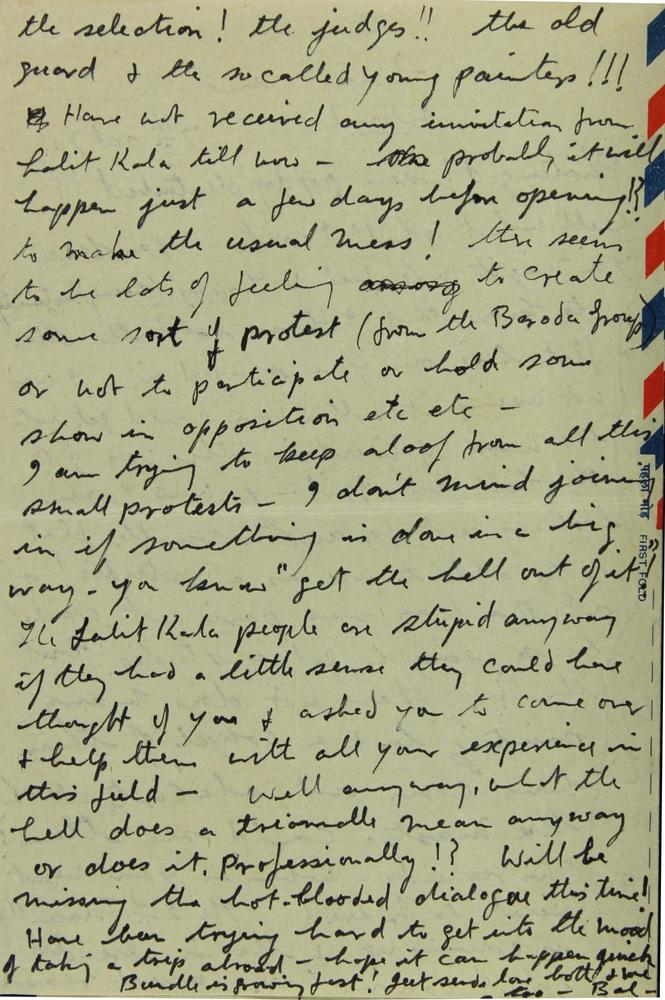 the selection! the judges!! the old
guard & the so called young painters!!!
Have not received any invitation from
Lalit Kala till now – probably it will
happen just a few days before opening!?
to make the usual mess! there seems
to be lots of feeling among to create
some sort of protest (from the Baroda group)
or not to participate or hold some
show in opposition etc etc –
I am trying to keep aloof from all this
small protests – I don't mind joining
in if something is done in a big
way – you know "get the hell out of it"!
The Lalit Kala people are stupid anyway
if they had a little sense they could have
thought of you & asked you to come over
& help them with all your experience in
this field – Well anyway, what the
hell does a triannalle mean anyway
or does it, professionally!? Will be
missing the hot-blooded dialogue this time!
Have been trying hard to get into the mood
of taking a trip abroad – hope it can happen quick
Bundle is growing fast! Jeet sends love both & me
too – Bal –
पहला मोड़ FIRST FOLD